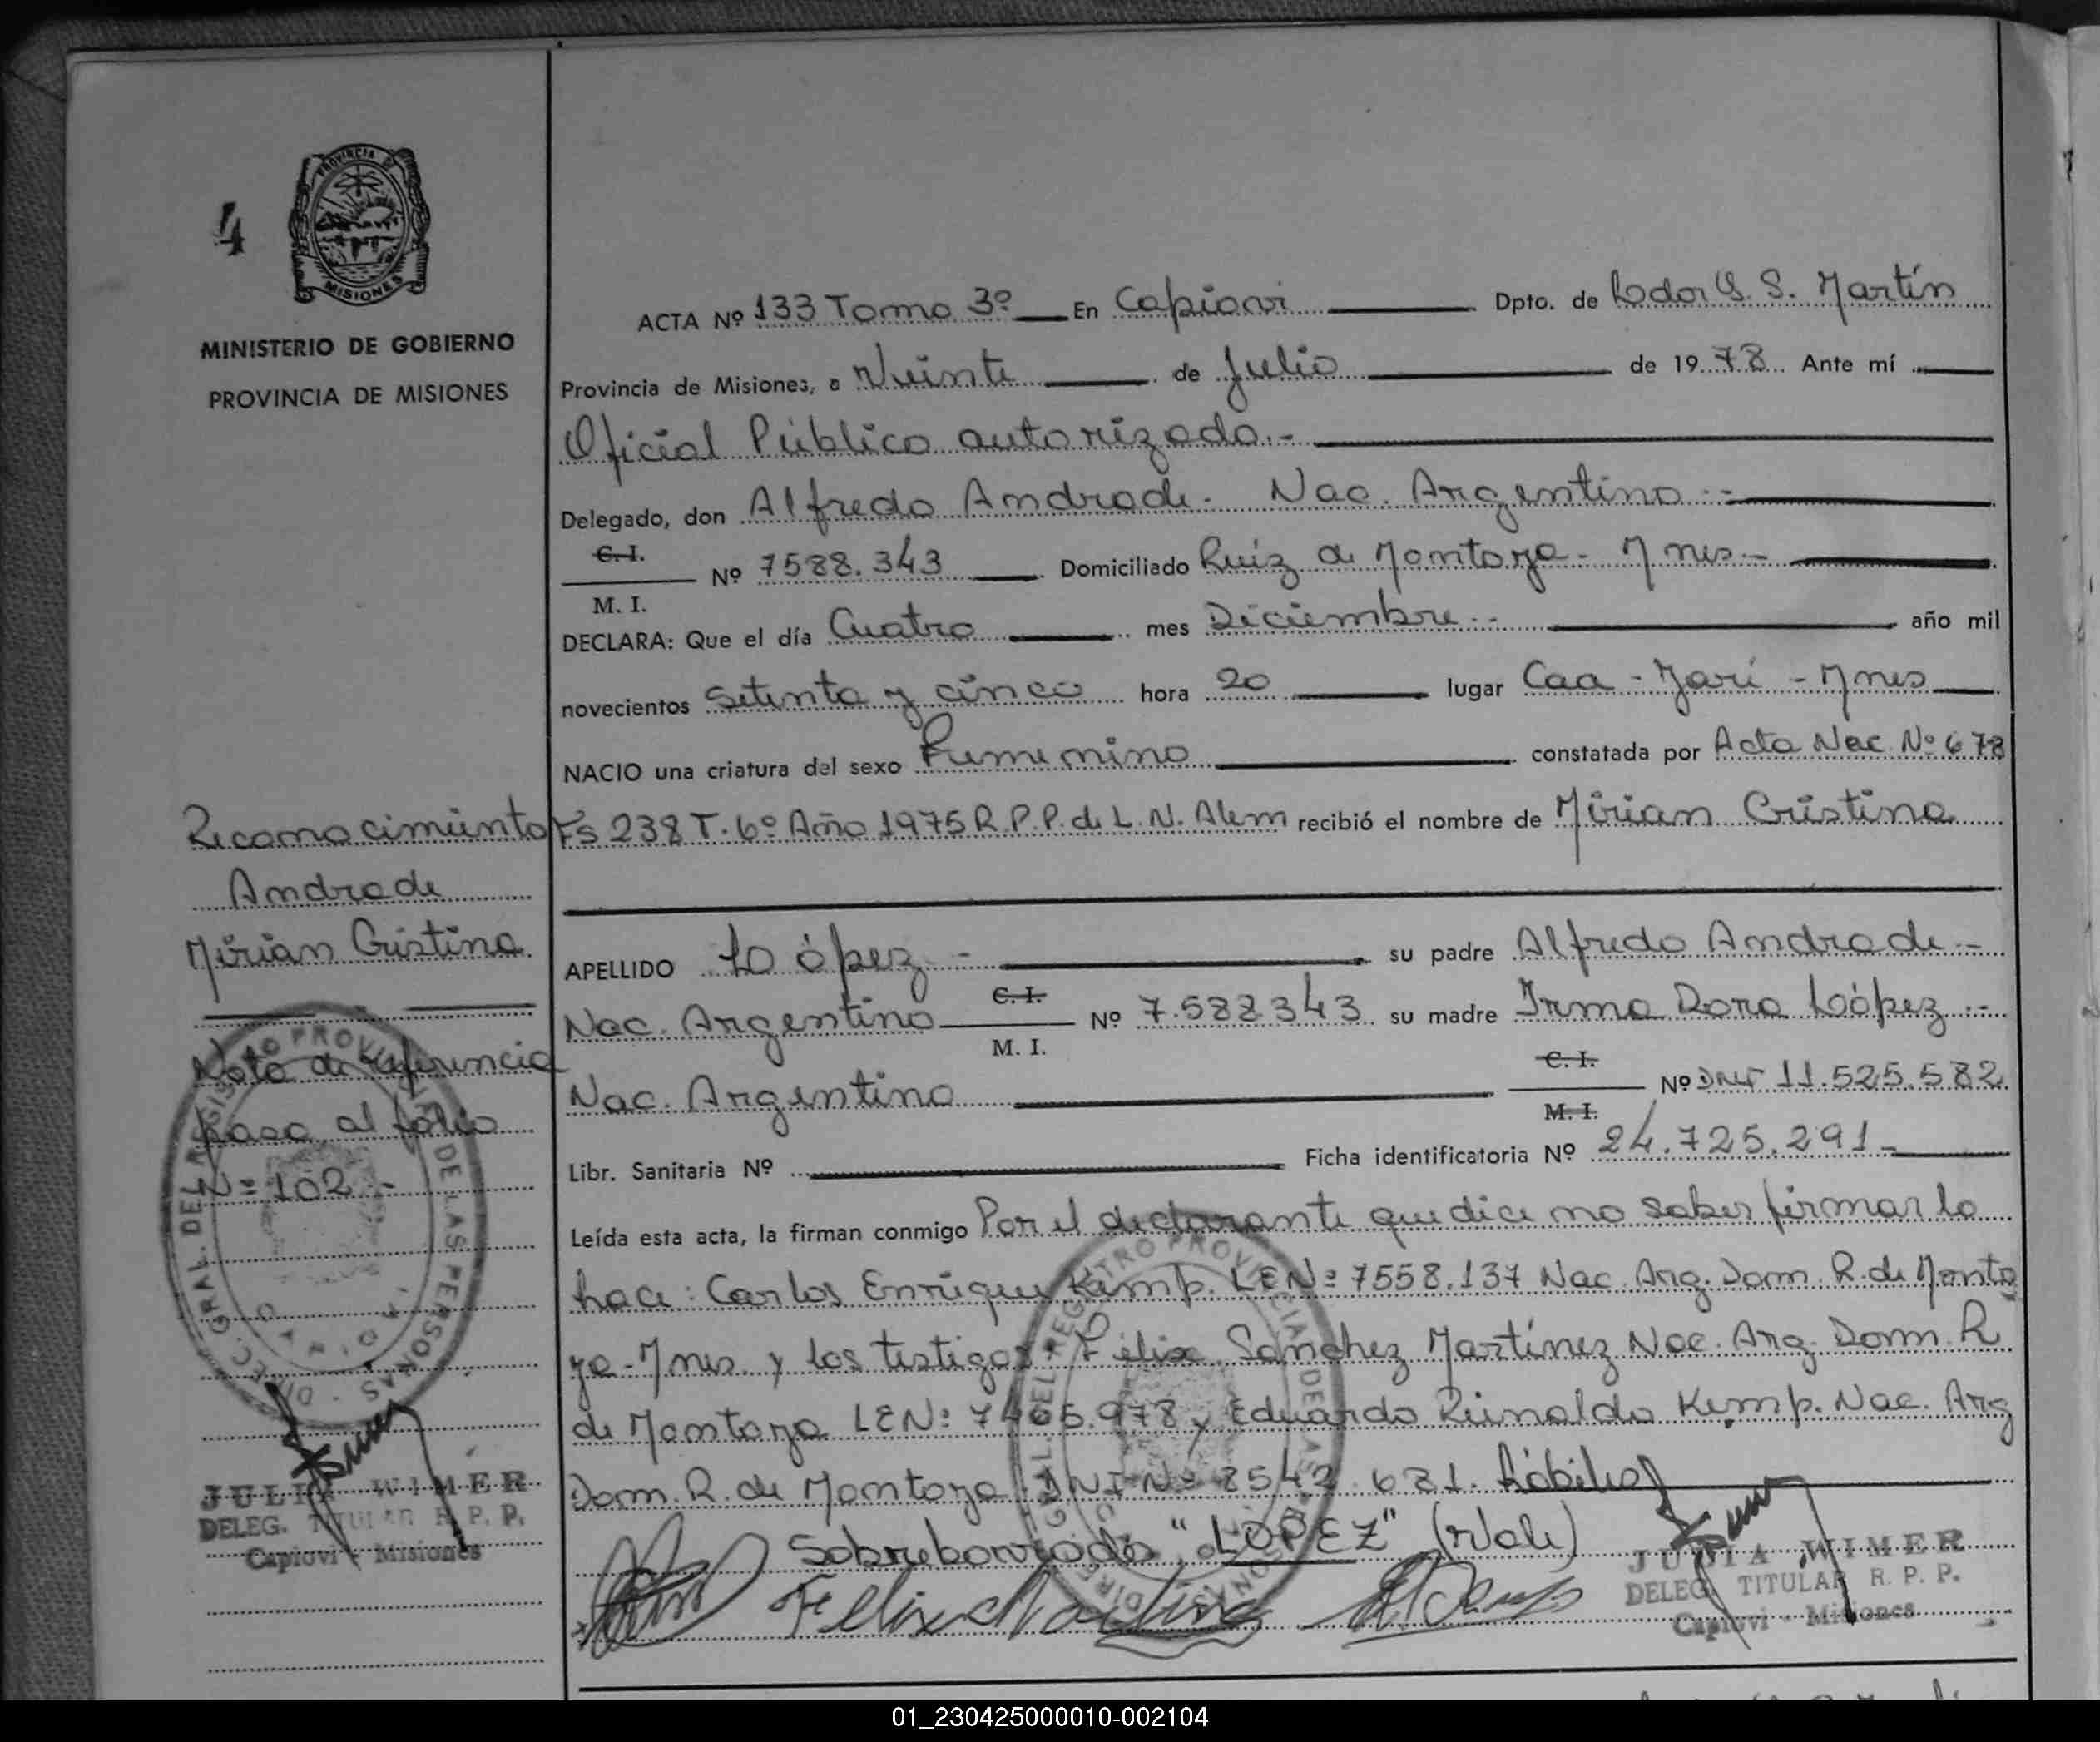 4
PROVINCIA DE
MISIONES
MINISTERIO DE GOBIERNO
PROVINCIA DE MISIONES
ACTA Nº 133 Tomo 3º En Capiovi Dpto. de Ldor G. S. Martín
Provincia de Misiones, a Veinte de Julio de 1978 Ante mí
Oficial Público autorizado.-
Delegado, don Alfredo Andrade. Nac. Argentino.-
C.I.
M. I.
Nº 7588.343 Domiciliado Ruiz de Montoya. Mnes.-
DECLARA: Que el día Cuatro mes Diciembre.- año mil
novecientos Setenta y cinco hora 20 lugar Caa - Yarí - Mnes
NACIO una criatura del sexo Femenino constatada por Acta Nac. Nº 678
Fs 238 T. 6º Año 1975 R.P.P. de L. N. Alem recibió el nombre de Mirian Cristina
Reconocimiento
Andrade
Mirian Cristina
APELLIDO López - su padre Alfredo Andrade.-
Nac. Argentino C.I. M. I. Nº 7.588343 su madre Irma Dora López.-
Nac. Argentina C.I. M.I. Nº DNI 11.525.582
Libr. Sanitaria Nº Ficha identificatoria Nº 24.725.291-
Nota de referencia
pasa al folio
Nº 102 -
Leída esta acta, la firman conmigo Por el declarante que dice no saber firmar lo
hace: Carlos Enrique Kemp. LE Nº 7558.137 Nac. Arg. Dom. R. de Monto
ya - Mnes. y los testigos: Félix Sanchez Martínez Nac. Arg. Dom. R
de Montoya LE Nº 7465.978 y Eduardo Reinaldo Kemp. Nac. Arg
Dom. R. de Montoya DNI Nº 8542.681. hábiles
Sobreborrado "LOPEZ" (Vale)
Felix Martinez
JULIA WIMER
DELEG. TITULAR R. P. P.
Capiovi - Misiones
JULIA WIMER
DELEG. TITULAR R. P. P.
Capiovi - Misiones
01_230425000010-002104